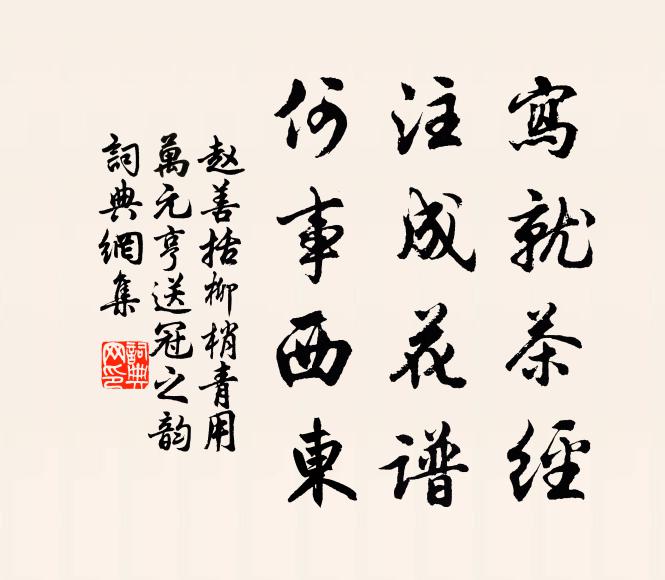 寫就茶經
注成花谱
何事西東
赵善括柳梢青用
萬元亨送冠之韵
詞典網集
詞典
网印